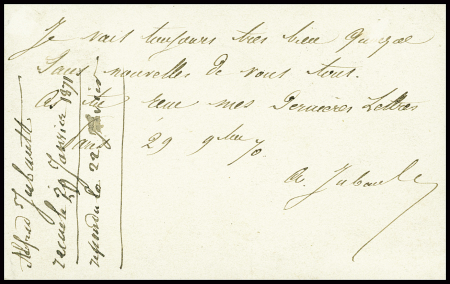 Je vais toujours très bien quoique
Sans nouvelles de vous tous.
mes Dernières Lettres
29 9bre 70
A. Jubault
Alfred Jubault
recue le 29 Janvier 1871
repondu le 22